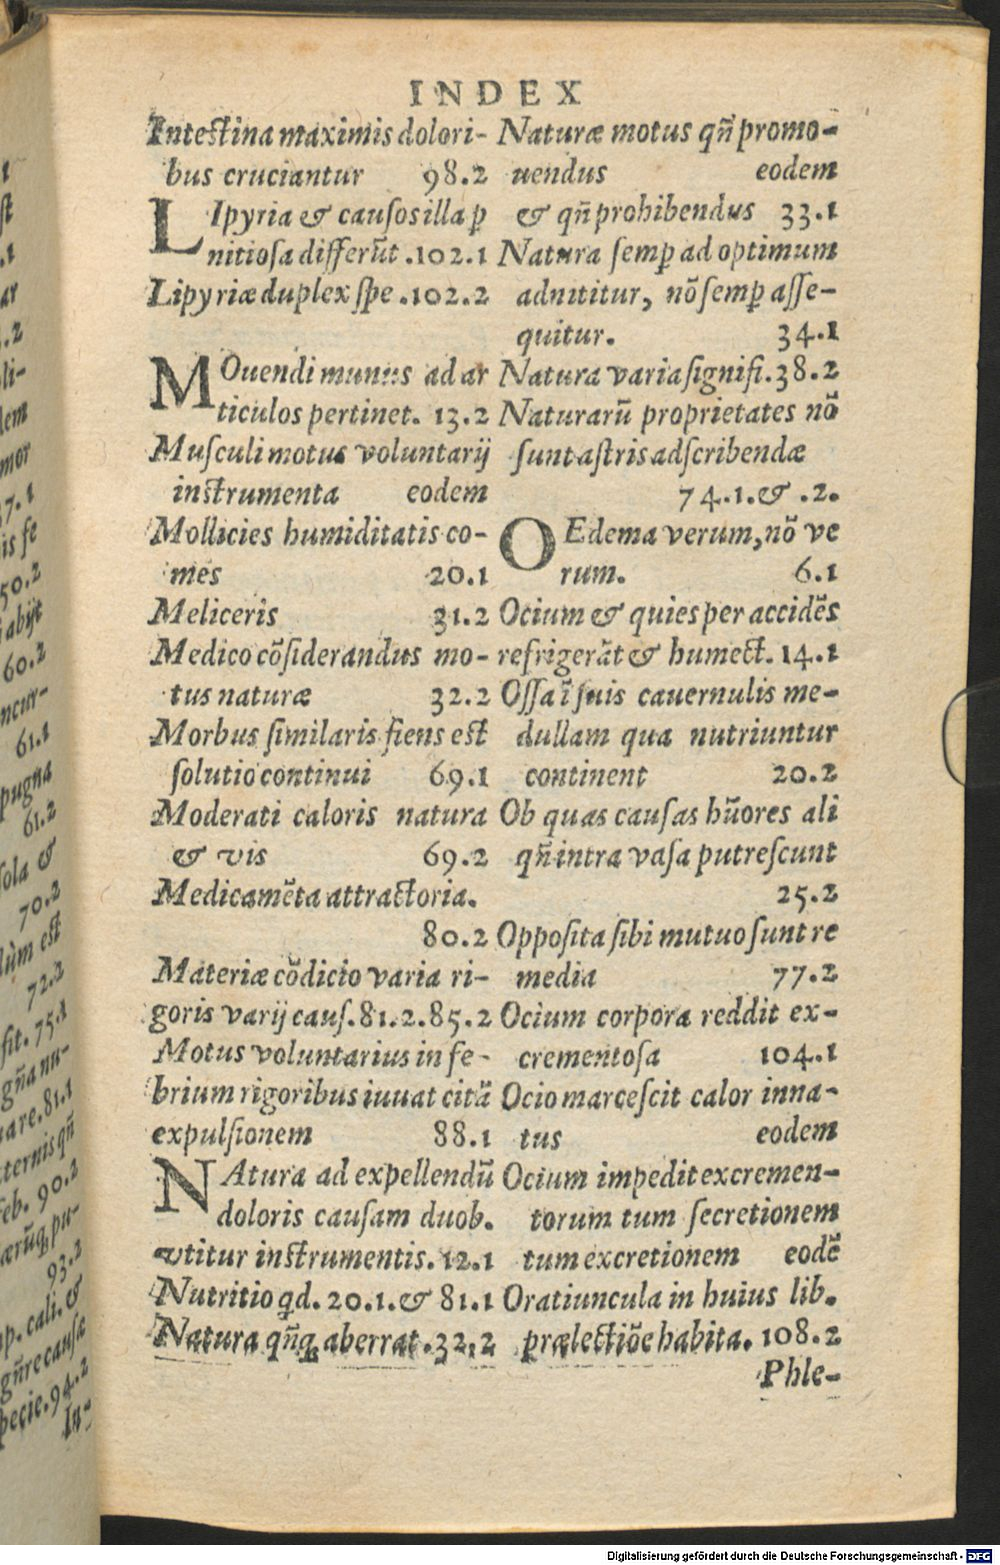 INDEX
Intestina maximis dolori-
bus cruciantur 98.2
LIpyria & causos illa p
nitiosa differūt .102.1
Lipyriæ duplex spe .102.2
MOuendi munus ad ar
ticulos pertinet. 13.2
Musculi motus voluntarij
instrumenta eodem
Mollicies humiditatis co-
mes 20.1
Meliceris 31.2
Medico cõsiderandus mo-
tus naturæ 32.2
Morbus similaris fiens est
solutio continui 69.1
Moderati caloris natura
& vis 69.2
Medicamēta attractoria.
80.2
Materiæ cõdicio varia ri-
goris varij caus.81.2.85.2
Motus voluntarius in fe-
brium rigoribus iuuat citã
expulsionem 88.1
NAtura ad expellendū
doloris causam duob.
vtitur instrumentis. 12.1
Nutritio qd. 20.1.& 81.1
Natura qñq aberrat .32.2
Naturæ motus qñ promo-
uendus eodem
& qñ prohibendus 33.1
Natura semp ad optimum
adnititur, nõ semp asse-
quitur. 34.1
Natura varia signifi.38.2
Naturarū proprietates nõ
sunt astris adscribendæ
74.1.& .2.
OEdema verum, nõ ve
rum. 6.1
Ocium & quies per accidēs
refrigerãt & humect. 14.1
Ossa ĩ suis cauernulis me-
dullam qua nutriuntur
continent 20.2
Ob quas causas hūores ali
qñ intra vasa putrescunt
25.2
Opposita sibi mutuo sunt re
media 77.2
Ocium corpora reddit ex-
crementosa 104.1
Ocio marcescit calor inna-
tus eodem
Ocium impedit excremen-
torum tum secretionem
tum excretionem eodē
Oratiuncula in huius lib.
prælectiõe habita. 108.2
Phle-
1
st
.1
ar
.2
li-
dem
mor
97.1
is fe
50.2
abijt
60.2
ncur-
61.1
pugna
61.2
sola &
70.2
lùm est
72.2
sit. 75.1
gñ a nu-
uare. 81.1
ternis qñ
feb. 90.2
ærūq, pu-
93.2
pp. cali. &
gñre causæ
pecie. 94.2
In-
Digitalisierung gefördert durch die Deutsche Forschungsgemeinschaft - DFG